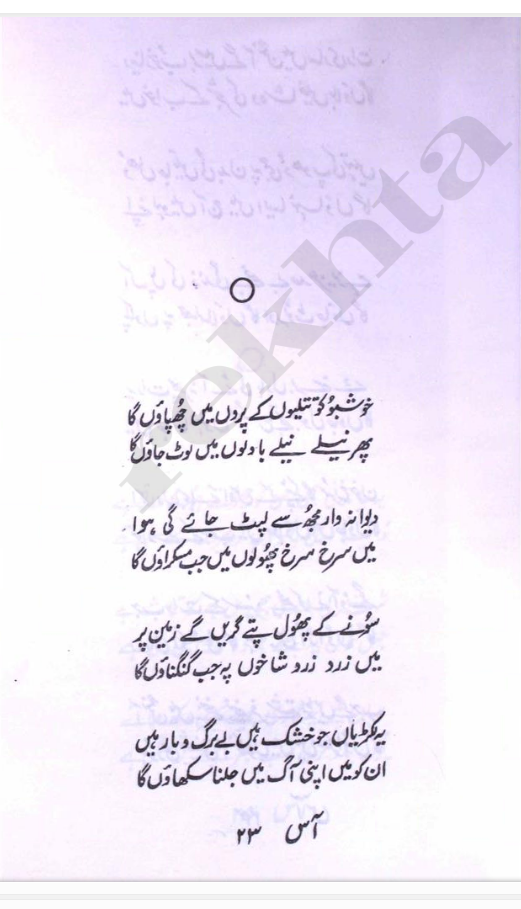 rekhta
خوشبو کو تتلیوں کے پروں میں چھپاؤں گا
پھر نیلے نیلے بادلوں میں لوٹ جاؤں گا
دیوانہ وار مجھ سے لپٹ جائے گی ہوا
میں سرخ سرخ پھولوں میں جب مسکراؤں گا
سونے کے پھول پتے گریں گے زمین پر
میں زرد زرد شاخوں پہ جب گنگناؤں گا
یہ لکڑیاں جو خشک ہیں بے برگ و بار ہیں
ان کو میں اپنی آگ میں جلنا سکھاؤں گا
آس ۲۳